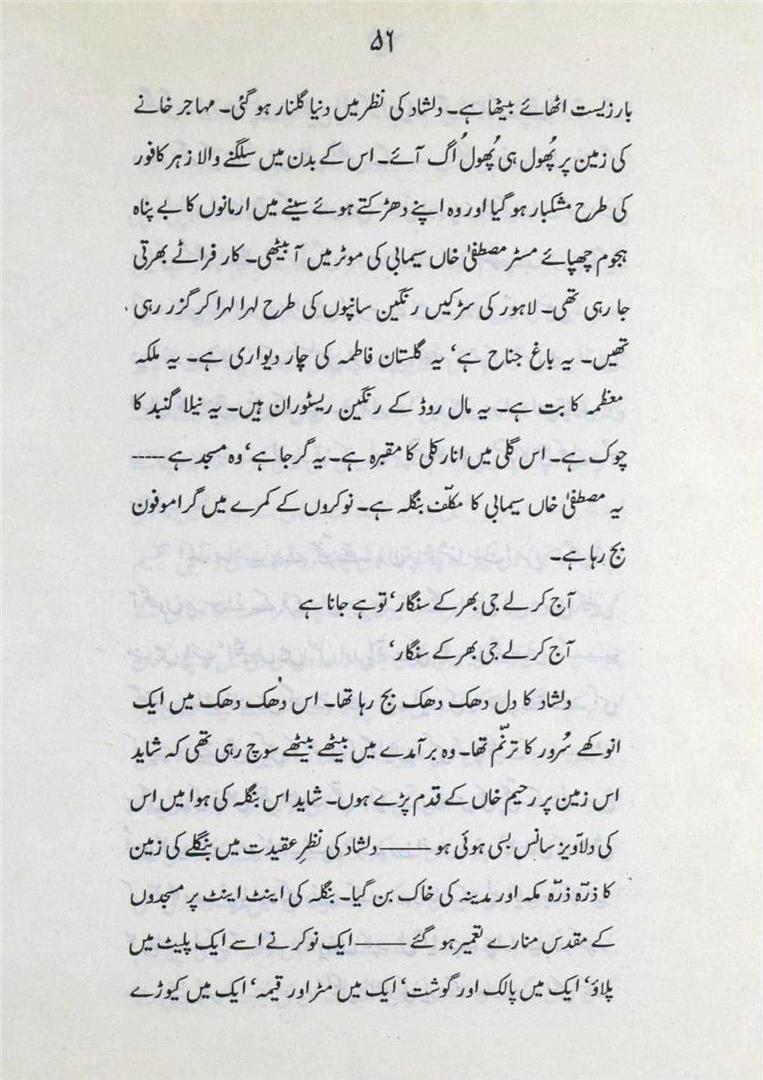 ۵۶
بار زیست اٹھائے بیٹھا ہے۔ دلشاد کی نظر میں دنیا گلنار ہو گئی۔ مہاجر خانے
کی زمین پر پُھول ہی پُھول اُگ آئے۔ اس کے بدن میں سلگنے والا زہر کافور
کی طرح مشکبار ہو گیا اور وہ اپنے دھڑکتے ہوئے سینے میں ارمانوں کا بے پناہ
ہجوم چھپائے مسٹر مصطفیٰ خاں سیمابی کی موٹر میں آ بیٹھی۔ کار فراٹے بھرتی
جا رہی تھی۔ لاہور کی سڑکیں رنگین سانپوں کی طرح لہرا لہرا کر گزر رہی
تھیں۔ یہ باغ جناح ہے‘ یہ گلستان فاطمہ کی چار دیواری ہے۔ یہ ملکہ
معظمہ کا بت ہے۔ یہ مال روڈ کے رنگین ریسٹوران ہیں۔ یہ نیلا گنبد کا
چوک ہے۔ اس گلی میں انارکلی کا مقبرہ ہے۔ یہ گرجا ہے‘ وہ مسجد ہے -----
یہ مصطفیٰ خاں سیمابی کا مکلّف بنگلہ ہے۔ نوکروں کے کمرے میں گراموفون
بج رہا ہے۔
آج کر لے جی بھر کے سنگار‘ تو ہے جانا ہے
آج کر لے جی بھر کے سنگار‘
دلشاد کا دل دھک دھک بج رہا تھا۔ اس دھک دھک میں ایک
انوکھے سُرور کا ترنّم تھا۔ وہ برآمدے میں بیٹھے بیٹھے سوچ رہی تھی کہ شاید
اس زمین پر رحیم خاں کے قدم پڑے ہوں۔ شاید اس بنگلہ کی ہوا میں اس
کی دلآویز سانس بسی ہوئی ہو ——— دلشاد کی نظرِ عقیدت میں بنگلے کی زمین
کا ذرّہ ذرّہ مکہ اور مدینہ کی خاک بن گیا۔ بنگلہ کی اینٹ اینٹ پر مسجدوں
کے مقدس منارے تعمیر ہو گئے ——— ایک نوکر نے اسے ایک پلیٹ میں
پلاؤ‘ ایک میں پالک اور گوشت‘ ایک میں مٹر اور قیمہ‘ ایک میں کیوڑے